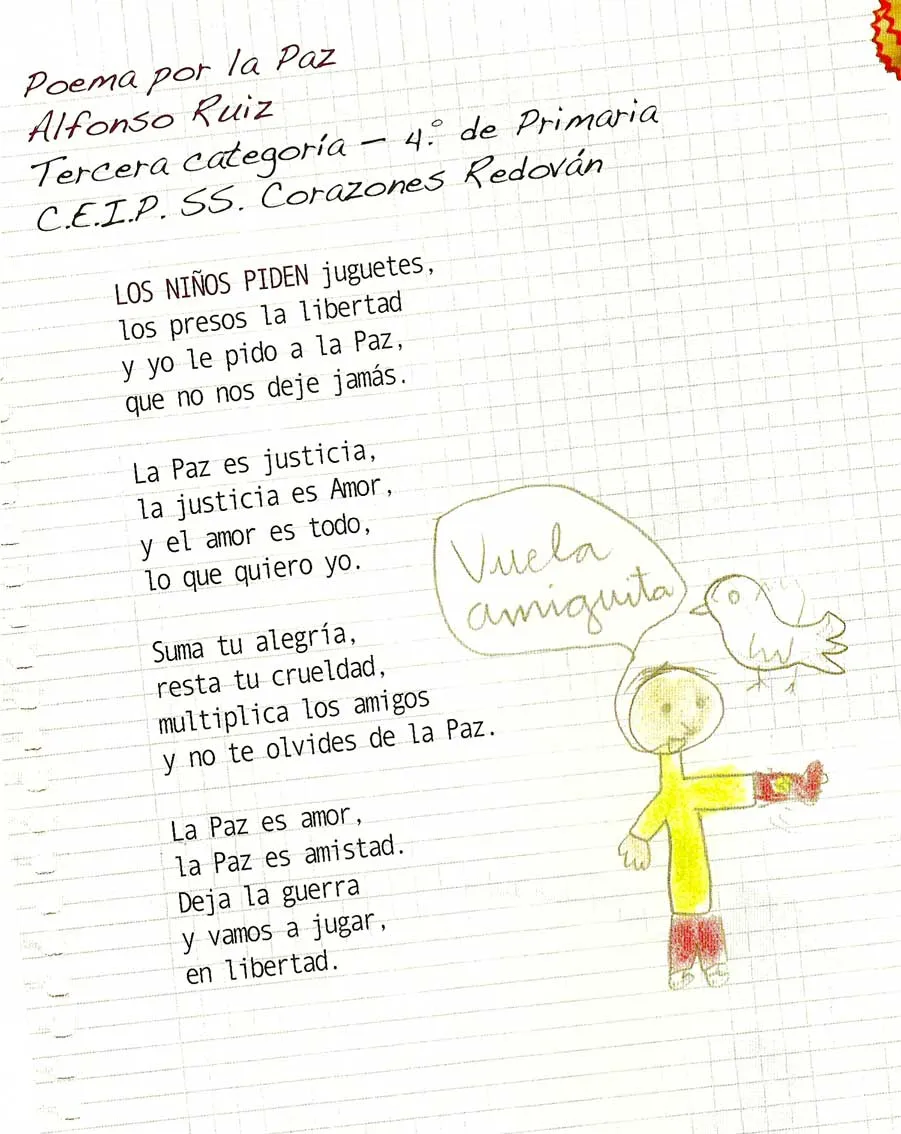 Poema por la Paz
Alfonso Ruiz
Tercera categoría – 4.º de Primaria
C.E.I.P. SS. Corazones Redován
LOS NIÑOS PIDEN juguetes,
los presos la libertad
y yo le pido a la Paz,
que no nos deje jamás.
La Paz es justicia,
la justicia es Amor,
y el amor es todo,
lo que quiero yo.
Suma tu alegría,
resta tu crueldad,
multiplica los amigos
y no te olvides de la Paz.
La Paz es amor,
la Paz es amistad.
Deja la guerra
y vamos a jugar,
en libertad.
Vuela
amiguita